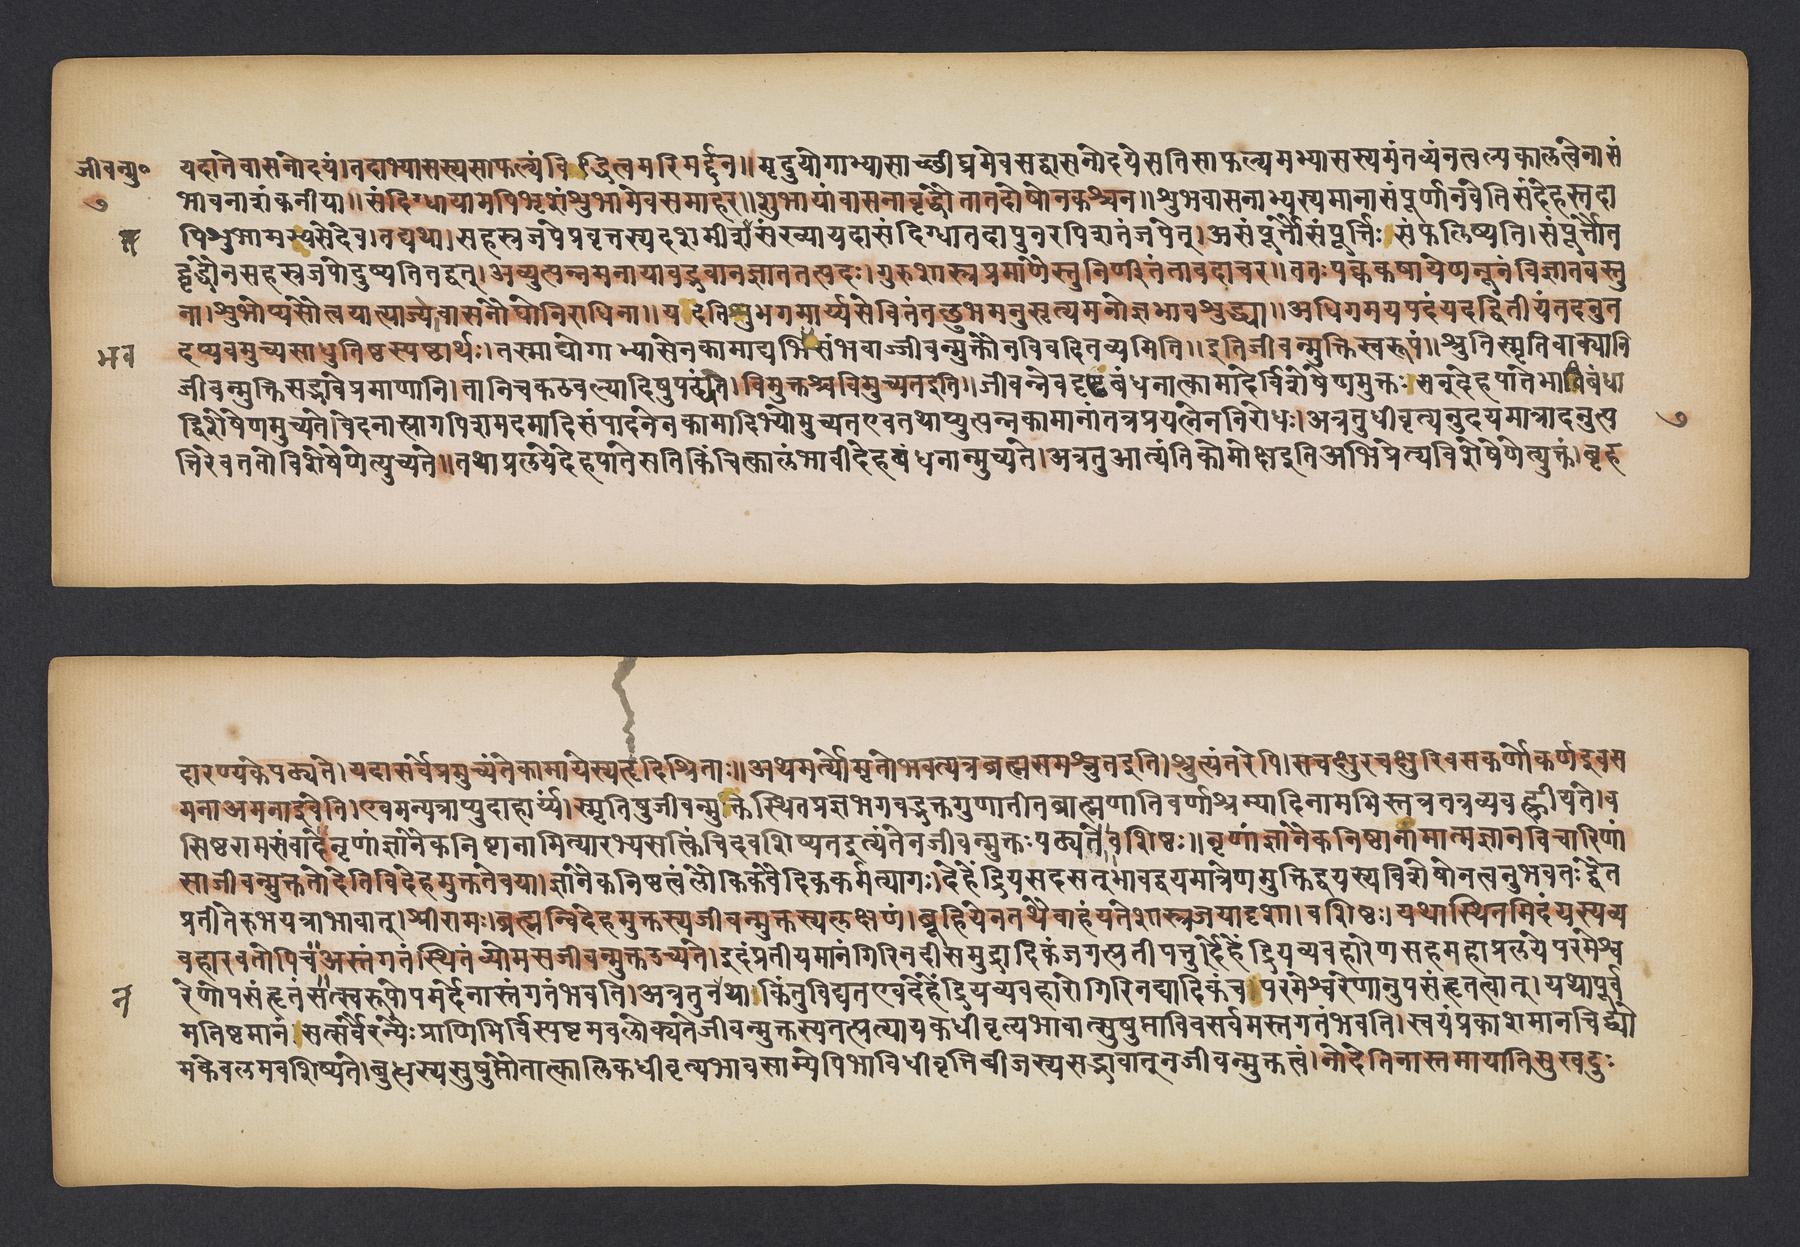 जीवन्मु॰ यदातेवासनोदयं।तदाभ्यासस्यसाफल्यंविद्धित्वमरिमर्द्दन॥मृदुयोगाभ्यासाच्छीघ्रमेवसद्वासनोदयेसतिसाफल्यमभ्यासस्यमंतव्यंनत्वल्पकालत्वेनासं
७ भावनाशंकनीया॥संदिग्धायामपिभृशंशुभामेवसमाहर॥शुभायांवासनावृद्धौतातदोषोनकश्चन॥शुभवासनाभ्यस्यमानासंपूर्णानवेतिसंदेहस्तदा
पिशुभामभ्यसेदेव।तद्यथा।सहस्त्रजपेप्रवृत्तस्यदशमीशसंख्यायदासंदिग्धातदापुनरपिशतंजपेत्।असंपूर्त्तौसंपूर्त्तिःसंफलिष्यति।संपूर्त्तौत
द्वृद्धौनसहस्त्रजपोदुष्यतितद्वत्।अव्युत्पन्नमनायावद्भवानज्ञाततत्पदः।गुरुशास्त्रप्रमाणैस्तुनिर्णीतंतावदाचर॥ततःपक्वकषायेणनूनंविज्ञातवस्तु
ना।शुभोप्यसौत्वयात्याज्योवासनौघोनिराधिना॥यदतिशुभगमार्य्यसेवितंतच्छुभमनुसृत्यमनोज्ञभावशुद्ध्या॥अधिगमयपदंयदद्वितीयंतदनुत
भव दप्यवमुच्यसाधुतिष्ठस्पष्ठार्थः।तस्माद्योगाभ्यासेनकामाद्यभिसंभवाज्जीवन्मुक्तौनविवदितव्यमिति॥इतिजीवन्मुक्तिस्वरूपं॥श्रुतिस्मृतिवाक्यानि
जीवन्मुक्तिसद्भावेप्रमाणानि।तानिचकठवल्यादिषुपठ्यंते।विमुक्तश्चविमुच्यतइति॥जीवन्नेवदृष्टबंधनात्कामादेर्विशेषेणमुक्तःसन्देहपातेभाविबंधा
द्विशेषेणमुच्यते।वेदनात्प्रागपिशमदमादिसंपादनेनकामादिभ्योमुच्यतएवतथाप्युत्पन्नकामानांतत्रप्रयत्नेननिरोधः।अत्रतुधीवृत्यनुदयमात्रादनुत्प ७
त्तिरेवततोविशेषेणेत्युच्यते॥तथाप्रलयेदेहपातेसतिकिंचित्कालंभावीदेहबंधनान्मुच्यते।अत्रतुआत्यंतिकोमोक्षइतिअभिप्रेत्यविशेषेणेत्युक्तं।बृह
दारण्यकेपठ्यते।यदासर्वेप्रमुच्यंतेकामायेस्यहृदिश्रिताः॥अथमर्त्योमृतोभवत्यत्रब्रह्मसमश्नुतइति।श्रुत्यंतरेपि।सचक्षुरचक्षुरिवसकर्णोकर्णइवस
मनाअमनाइवेति।एवमन्यत्राप्युदाहार्य्यं।स्मृतिषुजीवन्मुक्तिस्थितप्रज्ञभगवद्भक्तगुणातीतब्राह्मणातिवर्णाश्रम्यादिनामभिस्तत्रतत्रव्यवह्रीयते।व
सिष्ठरामसंवादेनृणांज्ञानैकनिष्टानामित्यारभ्यसत्किंचिदवशिष्यतइत्यंतेनजीवन्मुक्तःपठ्यतेवशिष्ठः॥नृणांज्ञानैकनिष्ठानामात्मज्ञानविचारिणां
साजीवन्मुक्ततोदेतिविदेहमुक्ततेवया।ज्ञानैकनिष्ठत्वंलौकिकवैदिककर्मत्यागः।देहेंद्रियसदसत्भावद्वयमात्रेणमुक्तिद्वयस्यविशेषोनत्वनुभवतःद्वैत
प्रतीतेरुभयत्राभावात्।श्रीरामः।ब्रह्मन्विदेहमुक्तस्यजीवन्मुक्तस्यलक्षणं।ब्रूहियेनतथैवाहंयतेशास्त्रजयादृशा।वशिष्ठः।यथास्थितमिदंयस्यव्य
वहारवतोपिच।अस्तंगतंस्थितंव्योमसजीवन्मुक्तउच्यते।इदंप्रतीयमानंगिरिनदीसमुद्रादिकंजगत्प्रतीपत्तुर्देहेंद्रियव्यवहारेणसहमहाप्रलयेपरमेश्व
न रेणोपसंहृतंसत्स्वरूपोपमर्दनास्तंगतंभवति।अत्रतुनथा।किंतुविद्यतएवदेहेंद्रियव्यवहारोगिरिनद्यादिकंचपरमेश्वरेणानुपसंहृतत्वात्।यथापूर्व
मतिष्टमानं।सत्सर्वैरन्यैःप्राणिभिर्विस्पष्टमवलोक्यतेजीवन्मुक्तस्यतत्प्रत्यायकधीवृत्यभावात्सुषुप्ताविवसर्वमस्तगतंभवति।स्वयंप्रकाशमानचिद्व्यो
मकेवलमवशिष्यते।बुद्धस्यसुषुप्तौतात्कालिकधीवृत्यभावसाम्येपिभाविधीवृत्तिबीजस्यसद्भावात्नजीवन्मुक्तत्वं।नोदेतिनास्तमायातिसुखदुः